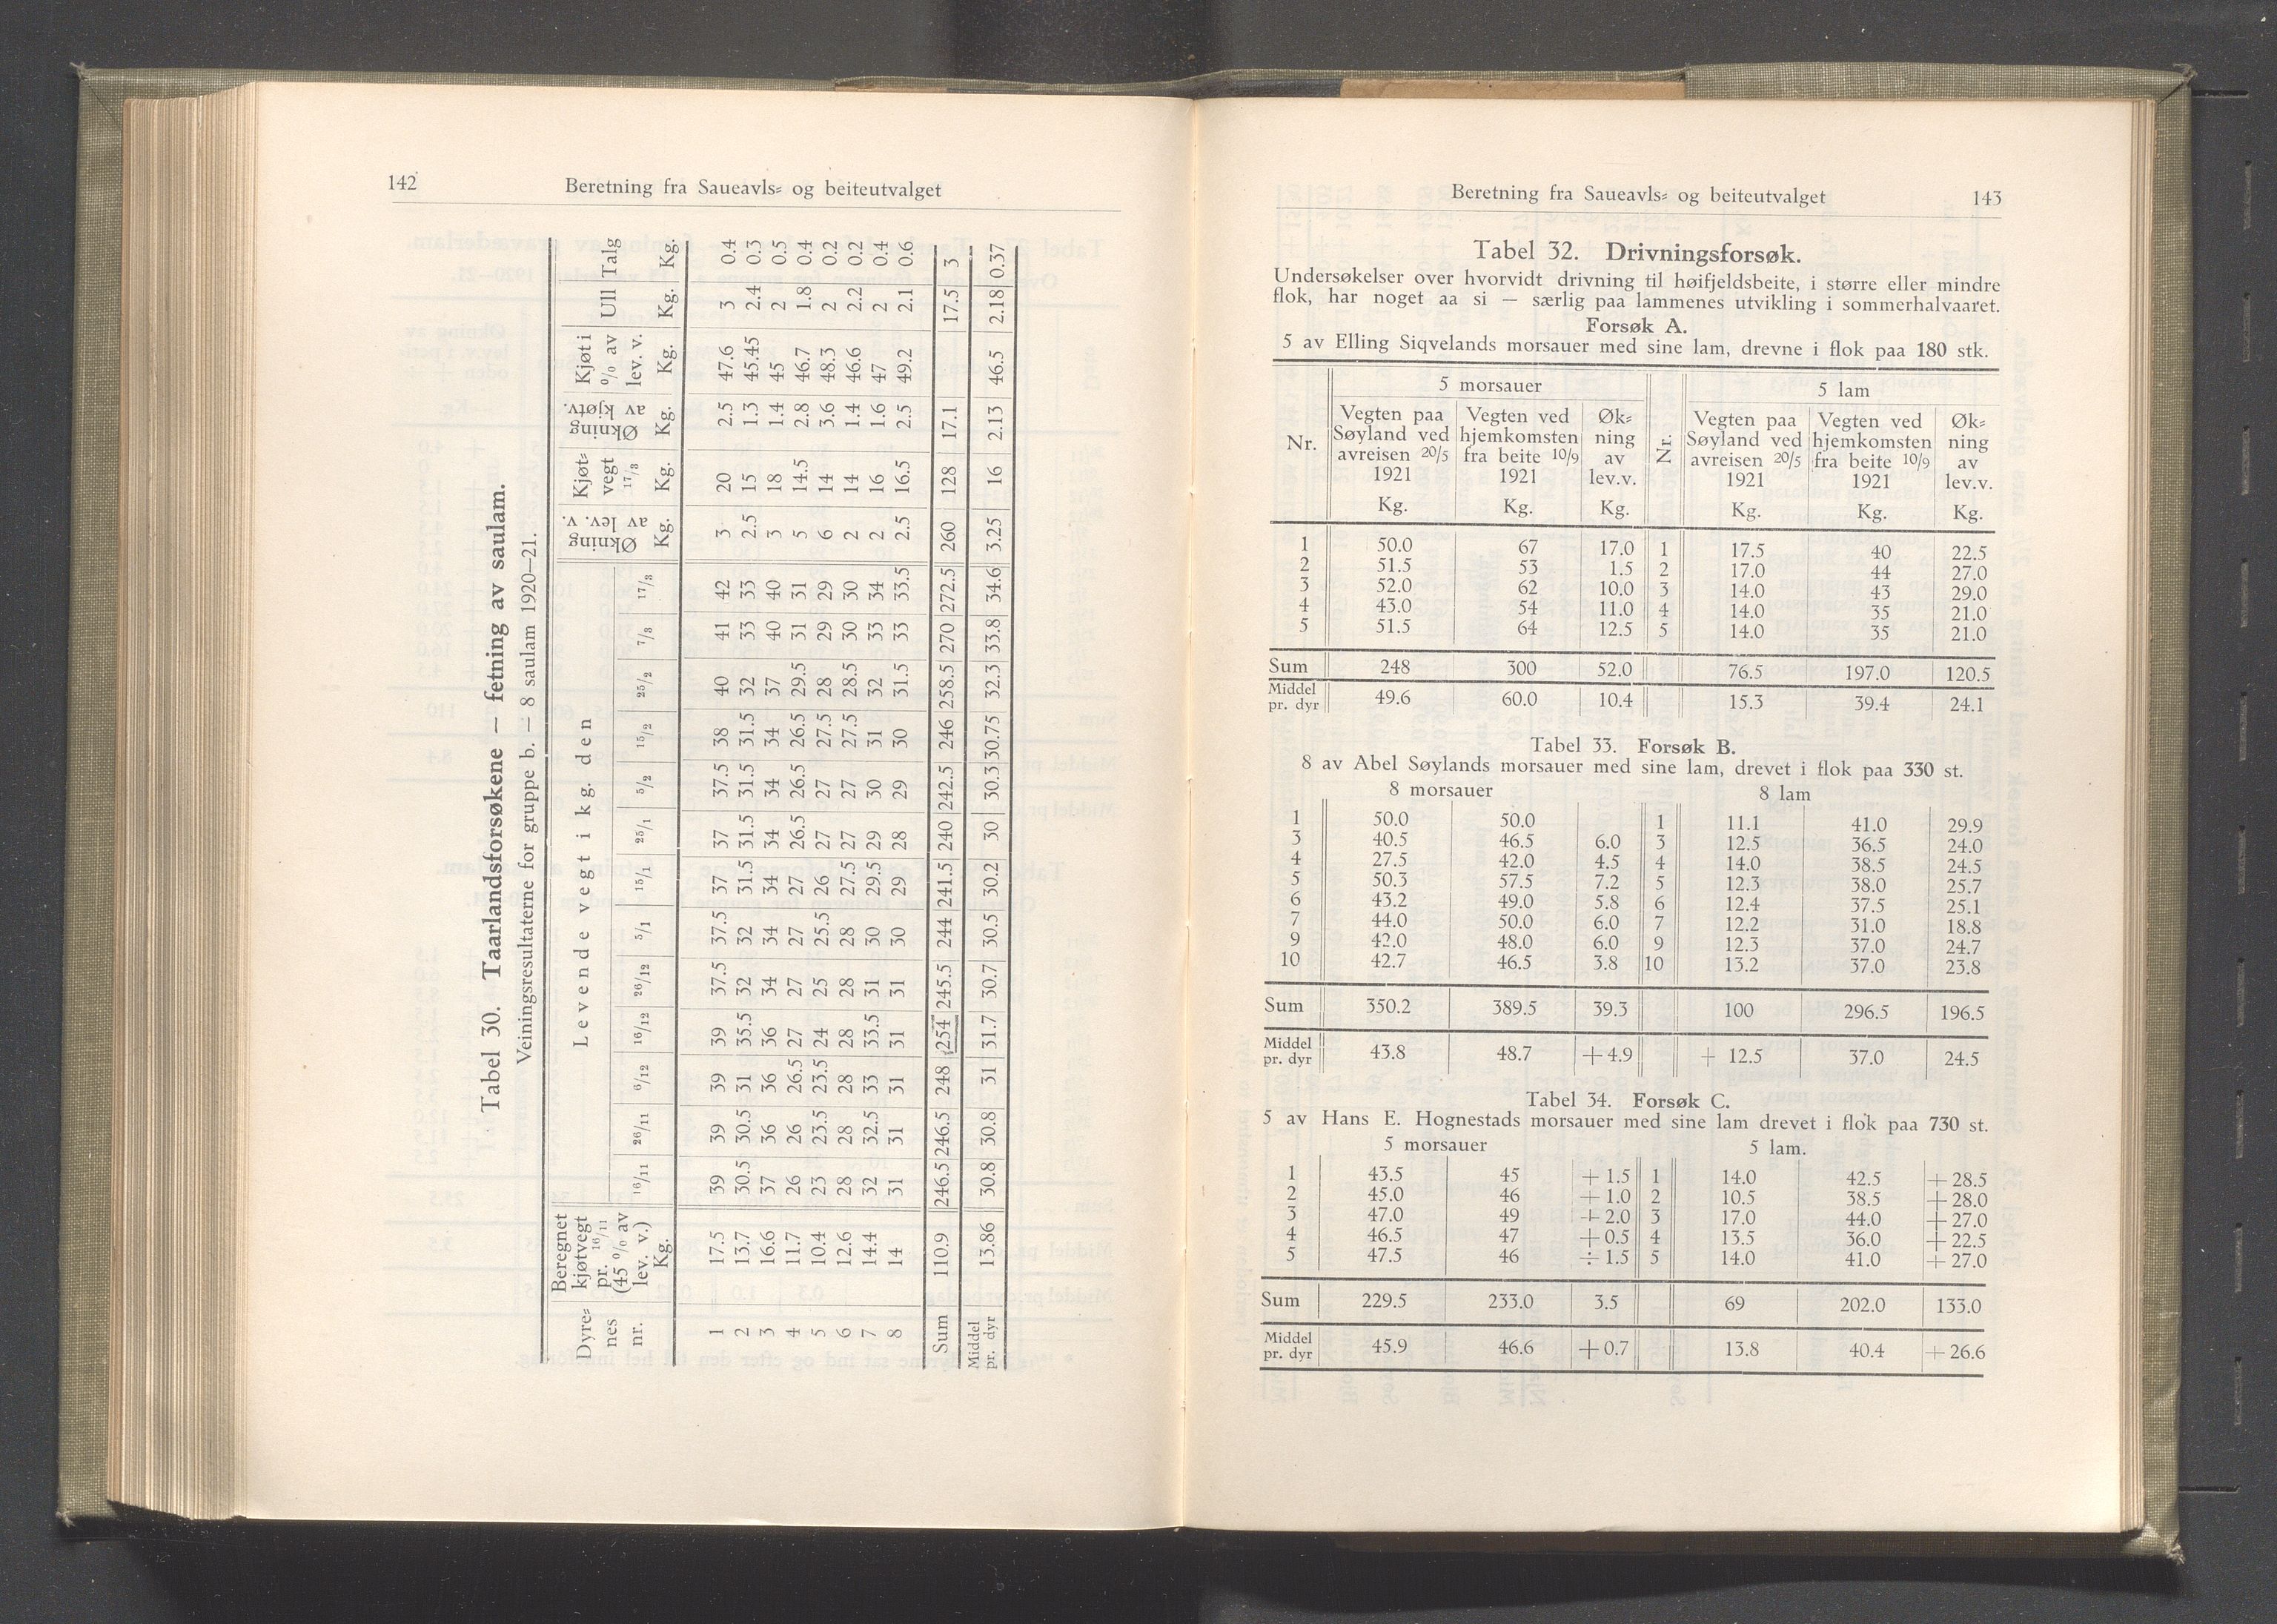 142
Beretning fra Saueavls= og beiteutvalget
Tabel 30. Taarlandsforsøkene — fetning av saulam.
Veiningsresultaterne for gruppe b. — 8 saulam 1920—21.
Dyre= nes nr. | Beregnet kjøtvegt pr. 16/11 (45 % av lev. v.) Kg. | Levende vegt i kg. den | Økning av lev. v. Kg. | Kjøt= vegt 17/3 Kg. | Økning av kjøtv. Kg. | Kjøt i % av lev. v. Kg. | Ull Kg. | Talg Kg.
16/11 | 26/11 | 6/12 | 16/12 | 26/12 | 5/1 | 15/1 | 25/1 | 5/2 | 15/2 | 25/2 | 7/3 | 17/3
1 17.5 39 39 39 39 37.5 37.5 37 37 37.5 38 40 41 42 3 20 2.5 47.6 3 0.4
2 13.7 30.5 30.5 31 35.5 32 32 31.5 31.5 31.5 31.5 32 33 33 2.5 15 1.3 45.45 2.4 0.3
3 16.6 37 36 36 36 34 34 34 34 34 34 37 40 40 3 18 1.4 45 2 0.5
4 11.7 26 26 26.5 27 27 27 27 26.5 26.5 26.5 29.5 31 31 5 14.5 2.8 46.7 1.8 0.4
5 10.4 23 23.5 23.5 24 25 25.5 26 27 27 27.5 28 29 29 6 14 3.6 48.3 2 0.2
6 12.6 28 28 28 28 28 28 27.5 27 27 27.5 28.5 30 30 2 14 1.4 46.6 2.2 0.2
7 14.4 32 32.5 33 33.5 31 30 29.5 29 30 31 32 33 34 2 16 1.6 47 2 0.4
8 14 31 31 31 31 31 30 29 28 29 30 31.5 33 33.5 2.5 16.5 2.5 49.2 2.1 0.6
Sum 110.9 246.5 246.5 248 254 245.5 244 241.5 240 242.5 246 258.5 270 272.5 260 128 17.1 17.5 3
Middel pr. dyr 13.86 30.8 30.8 31 31.7 30.7 30.5 30.2 30 30.3 30.75 32.3 33.8 34.6 3.25 16 2.13 46.5 2.18 0.37
Beretning fra Saueavls= og beiteutvalget
143
Tabel 32. Drivningsforsøk.
Undersøkelser over hvorvidt drivning til høifjeldsbeite, i større eller mindre
flok, har noget aa si — særlig paa lammenes utvikling i sommerhalvaaret.
Forsøk A.
5 av Elling Siqvelands morsauer med sine lam, drevne i flok paa 180 stk.
5 morsauer 5 lam
Nr. | Vegten paa Søyland ved avreisen 20/5 1921 Kg. | Vegten ved hjemkomsten fra beite 10/9 1921 Kg. | Øk= ning av lev.v. Kg. | Nr. | Vegten paa Søyland ved avreisen 20/5 1921 Kg. | Vegten ved hjemkomsten fra beite 10/9 1921 Kg. | Øk= ning av lev.v. Kg.
1 50.0 67 17.0 1 17.5 40 22.5
2 51.5 53 1.5 2 17.0 44 27.0
3 52.0 62 10.0 3 14.0 43 29.0
4 43.0 54 11.0 4 14.0 35 21.0
5 51.5 64 12.5 5 14.0 35 21.0
Sum 248 300 52.0 76.5 197.0 120.5
Middel pr. dyr 49.6 60.0 10.4 15.3 39.4 24.1
Tabel 33. Forsøk B.
8 av Abel Søylands morsauer med sine lam, drevet i flok paa 330 st.
8 morsauer 8 lam
1 50.0 50.0 1 11.1 41.0 29.9
3 40.5 46.5 6.0 3 12.5 36.5 24.0
4 27.5 42.0 4.5 4 14.0 38.5 24.5
5 50.3 57.5 7.2 5 12.3 38.0 25.7
6 43.2 49.0 5.8 6 12.4 37.5 25.1
7 44.0 50.0 6.0 7 12.2 31.0 18.8
9 42.0 48.0 6.0 9 12.3 37.0 24.7
10 42.7 46.5 3.8 10 13.2 37.0 23.8
Sum 350.2 389.5 39.3 100 296.5 196.5
Middel pr. dyr 43.8 48.7 + 4.9 + 12.5 37.0 24.5
Tabel 34. Forsøk C.
5 av Hans E. Hognestads morsauer med sine lam drevet i flok paa 730 st.
5 morsauer 5 lam.
1 43.5 45 + 1.5 1 14.0 42.5 + 28.5
2 45.0 46 + 1.0 2 10.5 38.5 + 28.0
3 47.0 49 + 2.0 3 17.0 44.0 + 27.0
4 46.5 47 + 0.5 4 13.5 36.0 + 22.5
5 47.5 46 ÷ 1.5 5 14.0 41.0 + 27.0
Sum 229.5 233.0 3.5 69 202.0 133.0
Middel pr. dyr 45.9 46.6 + 0.7 13.8 40.4 + 26.6